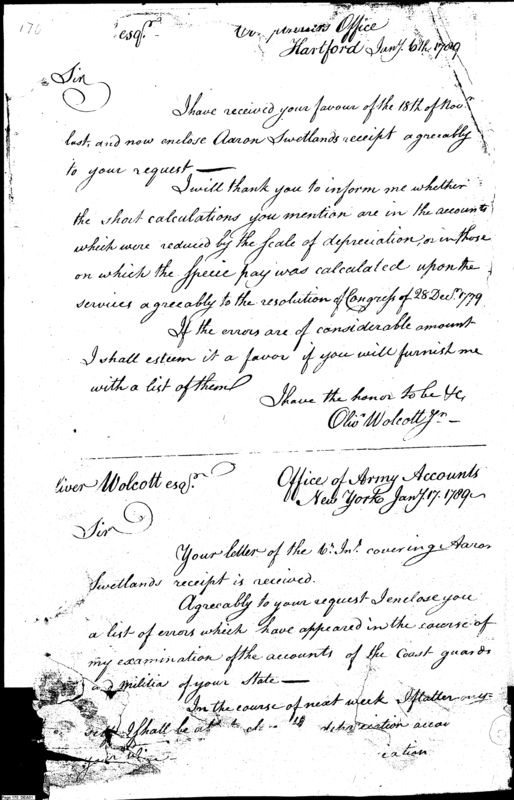 170
esqr. Office
Hartford Jany. 6th. 1789
Sir
I have received your favour of the 18th of Novr.
last, and now enclose Aaron Swetlands receipt agreeably
to your request —
I will thank you to inform me whether
the short calculations you mention are in the accounts
which were reduced by the Scale of depreciation, or in those
on which the Specie pay was calculated upon the
services agreeably to the resolution of Congress of 28 Decr. 1779
If the errors are of considerable amount
I shall esteem it a favor if you will furnish me
with a list of them
I have the honor to be &c,
Olivr. Wolcott Jr. —
liver Wolcott esqr. Office of Army Accounts
New York Jany. 17. 1789
Sir
Your letter of the 6th. Inst. covering Aaron
Swetlands receipt is received.
Agreeably to your request I enclose you
a list of errors which have appeared in the course of
my examination of the accounts of the Coast guards
and militia of your State —
In the course of next week I flatter my-
self I shall be
your